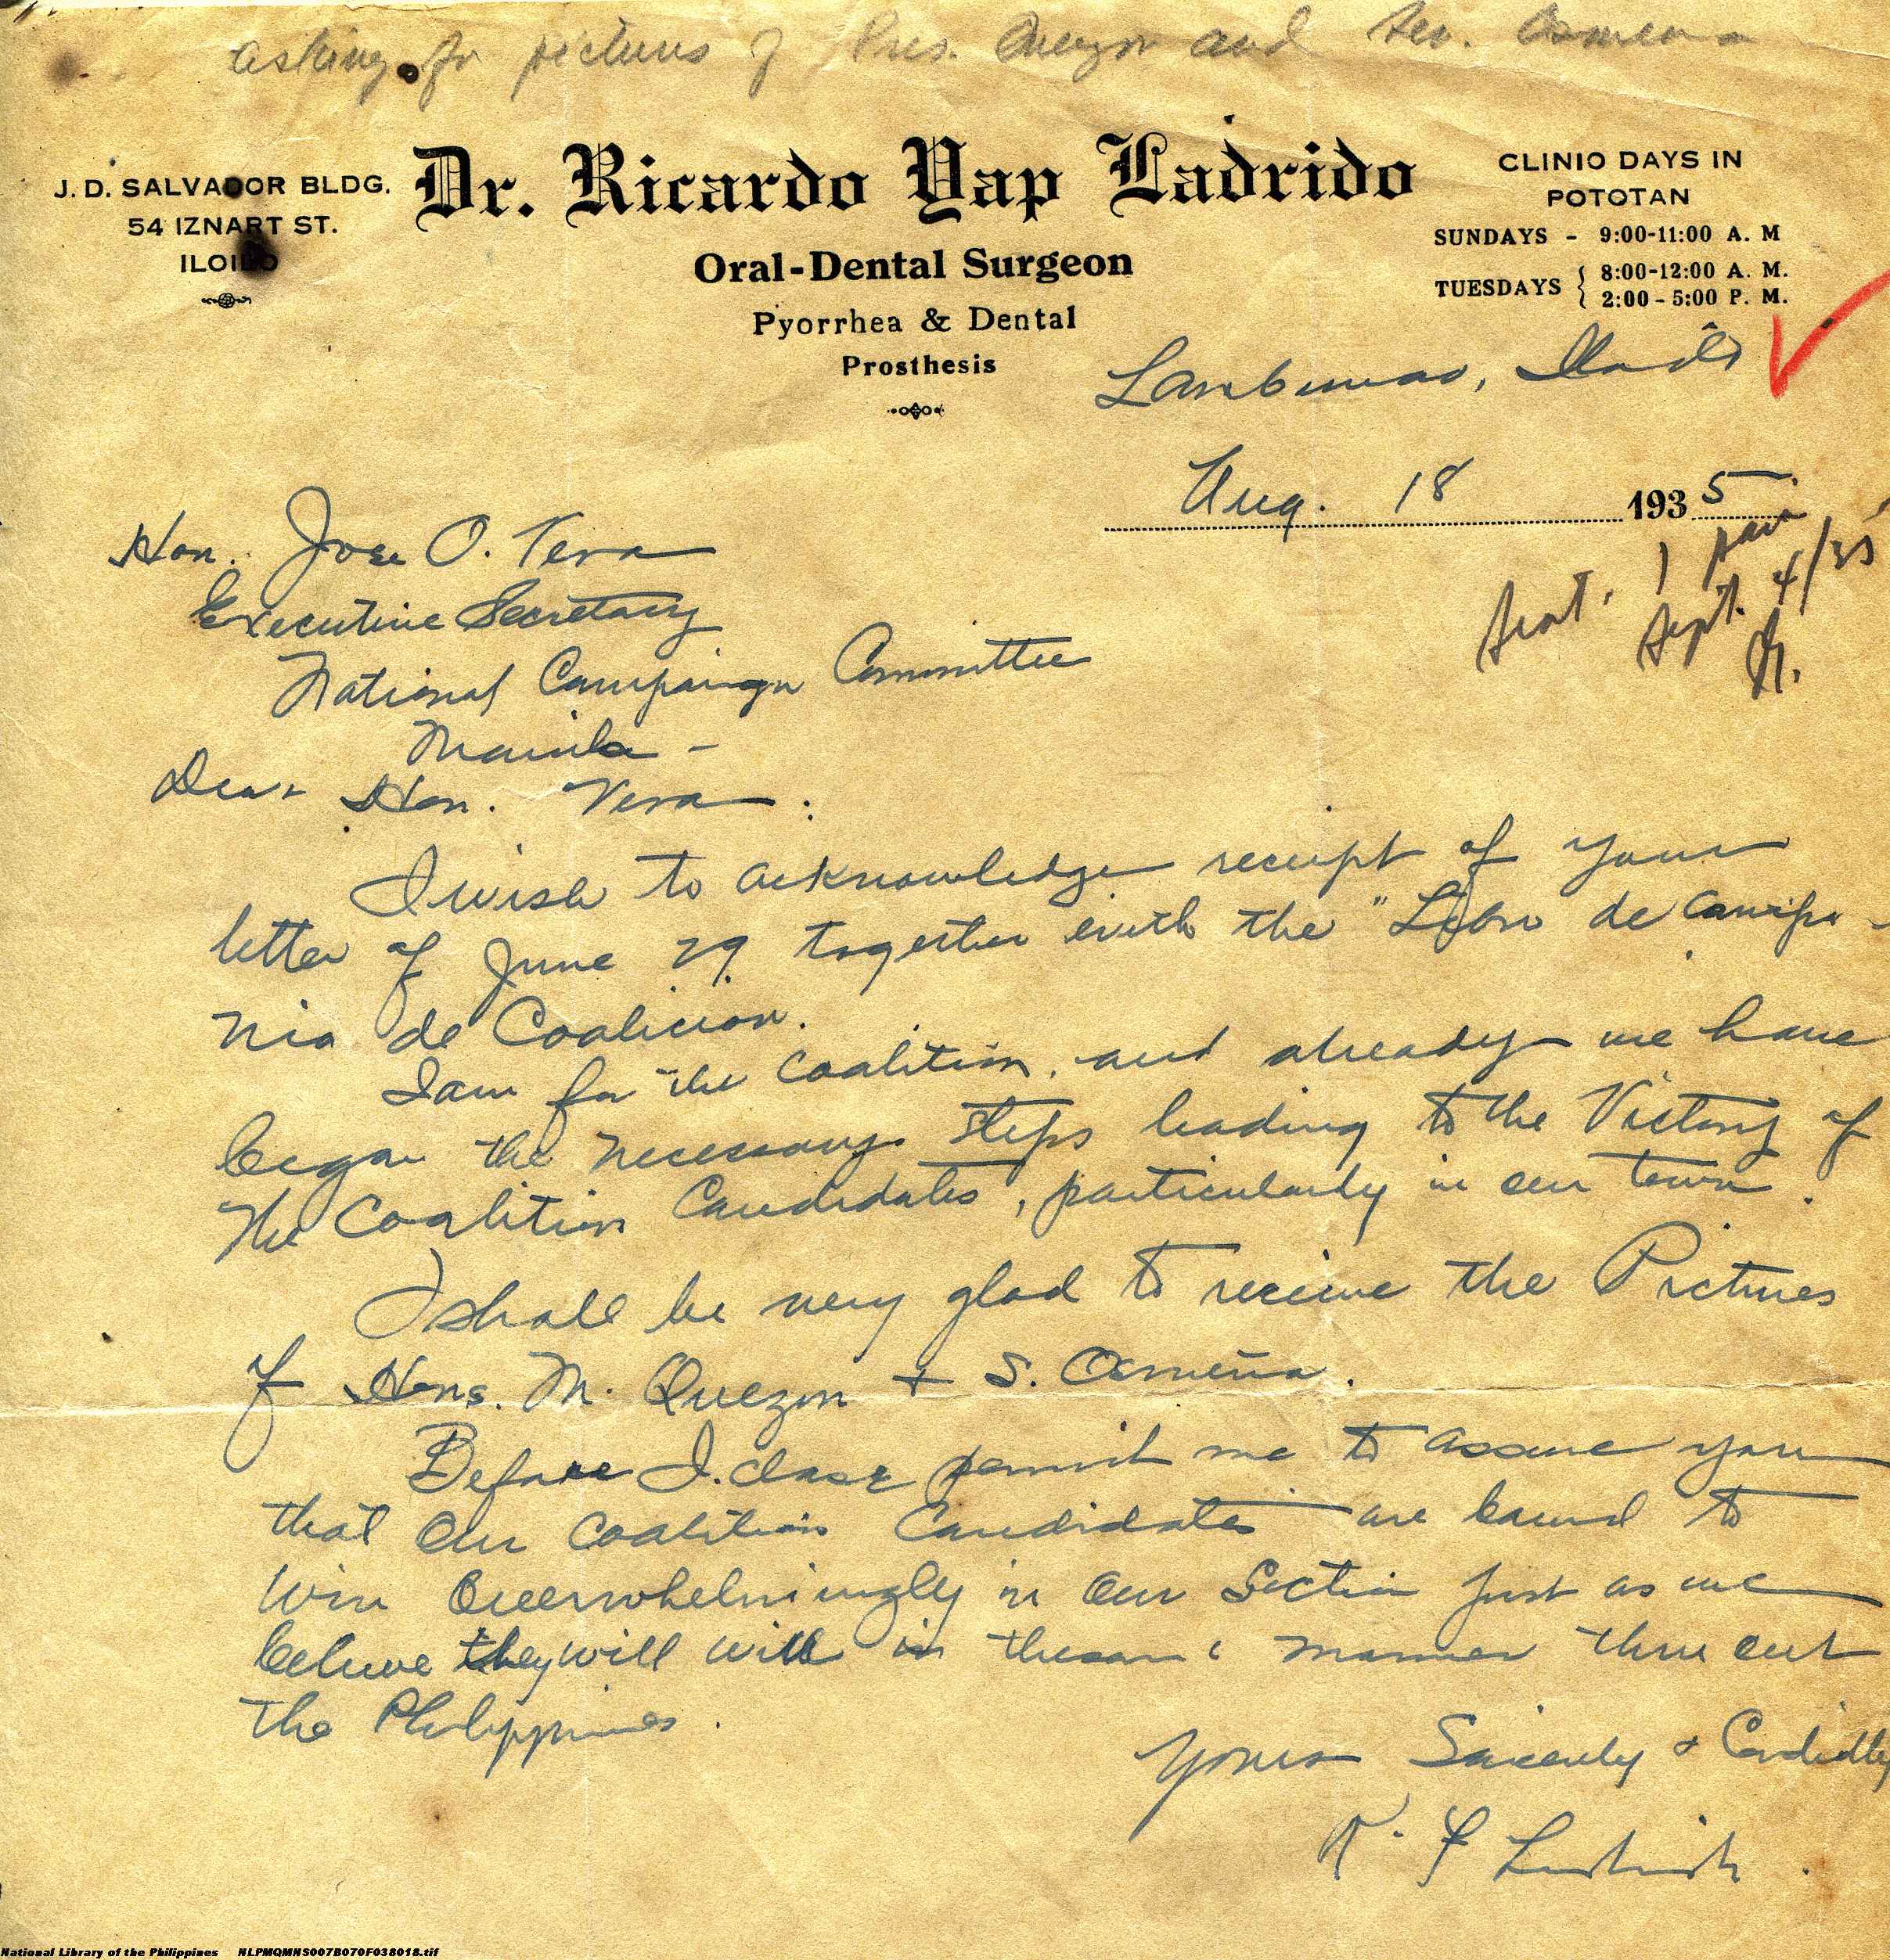 asking for pictures of Pres. Quezon and Sen. Osmena
J. D. SALVADOR BLDG.
54 IZNART ST.
ILOILO
Dr. Ricardo Yap Ladrido
Oral-Dental Surgeon
Pyorrhea & Dental
Prosthesis
CLINIO DAYS IN
POTOTAN
SUNDAYS - 9:00-11:00 A. M
TUESDAYS { 8:00-12:00 A. M.
2:00 - 5:00 P. M.
Lambunao, Iloilo
Aug. 18 1935
Sent. 1 pair
Sept. 4/35
Hon. Jose O. Vera
Executive Secretary
National Campaign Committee
Manila -
Dear Hon. Vera :
I wish to acknowledge receipt of your
letter of June 29 together with the "Libro de Campa-
nia de Coalicion.
I am for the Coalition, and already we have
began the necessary steps leading to the Victory of
the Coalition Candidates, particularly in our town.
I shall be very glad to receive the Pictures
of Hons. M. Quezon + S. Osmeña.
Before I close permit me to assure you
that our Coalition Candidates are bound to
win overwhelmingly in our Section just as we
believe they will in the same manner thru out
the Philippines.
Yours Sincerely & Cordially
R. Y Ladrido
National Library of the Philippines NLPMQMNS007B070F038018.tif